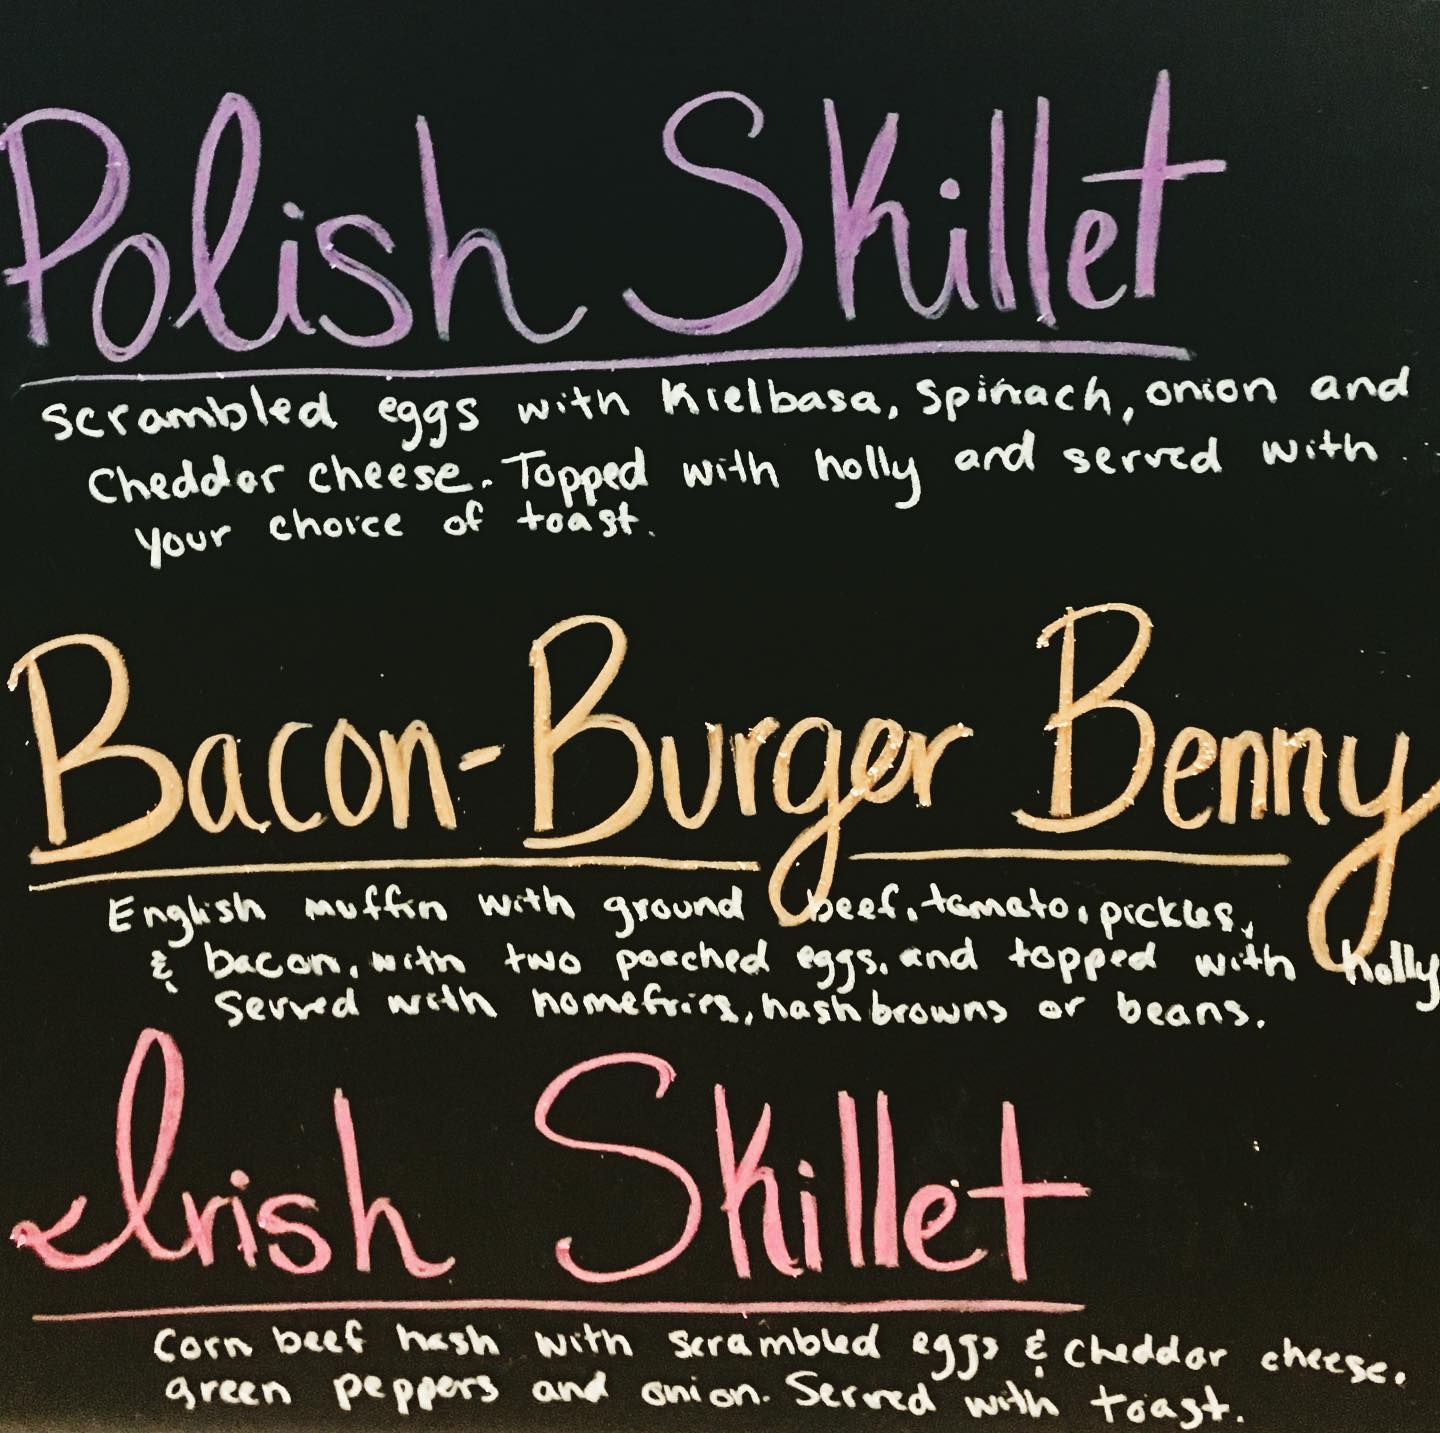 Polish Skillet
scrambled eggs with Kielbasa, spinach, onion and
Cheddar cheese. Topped with holly and served with
your choice of toast.
Bacon-Burger Benny
English muffin with ground beef, tomato, pickles,
& bacon, with two poached eggs, and topped with holly
Served with homefries, hashbrowns or beans.
Irish Skillet
Corn beef hash with scrambled eggs & Cheddar cheese,
green peppers and onion. Served with toast.